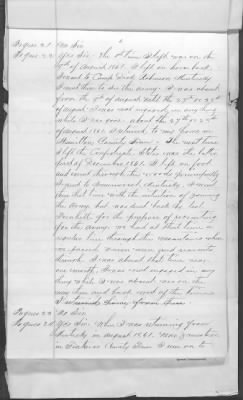 To ques 21. No Sir.
To ques 22. Yes Sir. The 1st time I left was on the
9th of August 1861. I left on horse back,
I went to Camp Dick Robinson Kentucky
I went there to see the army. I was absent
from the 9th of August until the 27th or 28th
of August. I was not engaged in any thing
while I was gone. about the 27th or 28th
of August 1861. I returned to my home in
Hamilton County Tenn. The next time
I left the Confederate States was the latter
part of December 1861. I left on foot
and went through the woods
I went to Kentucky. I went
then that time with the intention of joining
the Army, but was sent back by Col.
for the purpose of recruiting
for the army. we had at that time a
line through the mountains where
we passed Union men and recruits
through. I was absent that time near
one month, I was not engaged in any
thing while I was absent
To ques 23. No Sir.
To ques 24. Yes Sir. When I was returning from
Kentucky in August 1861. near Jamestown
in Fentress County Tenn I was